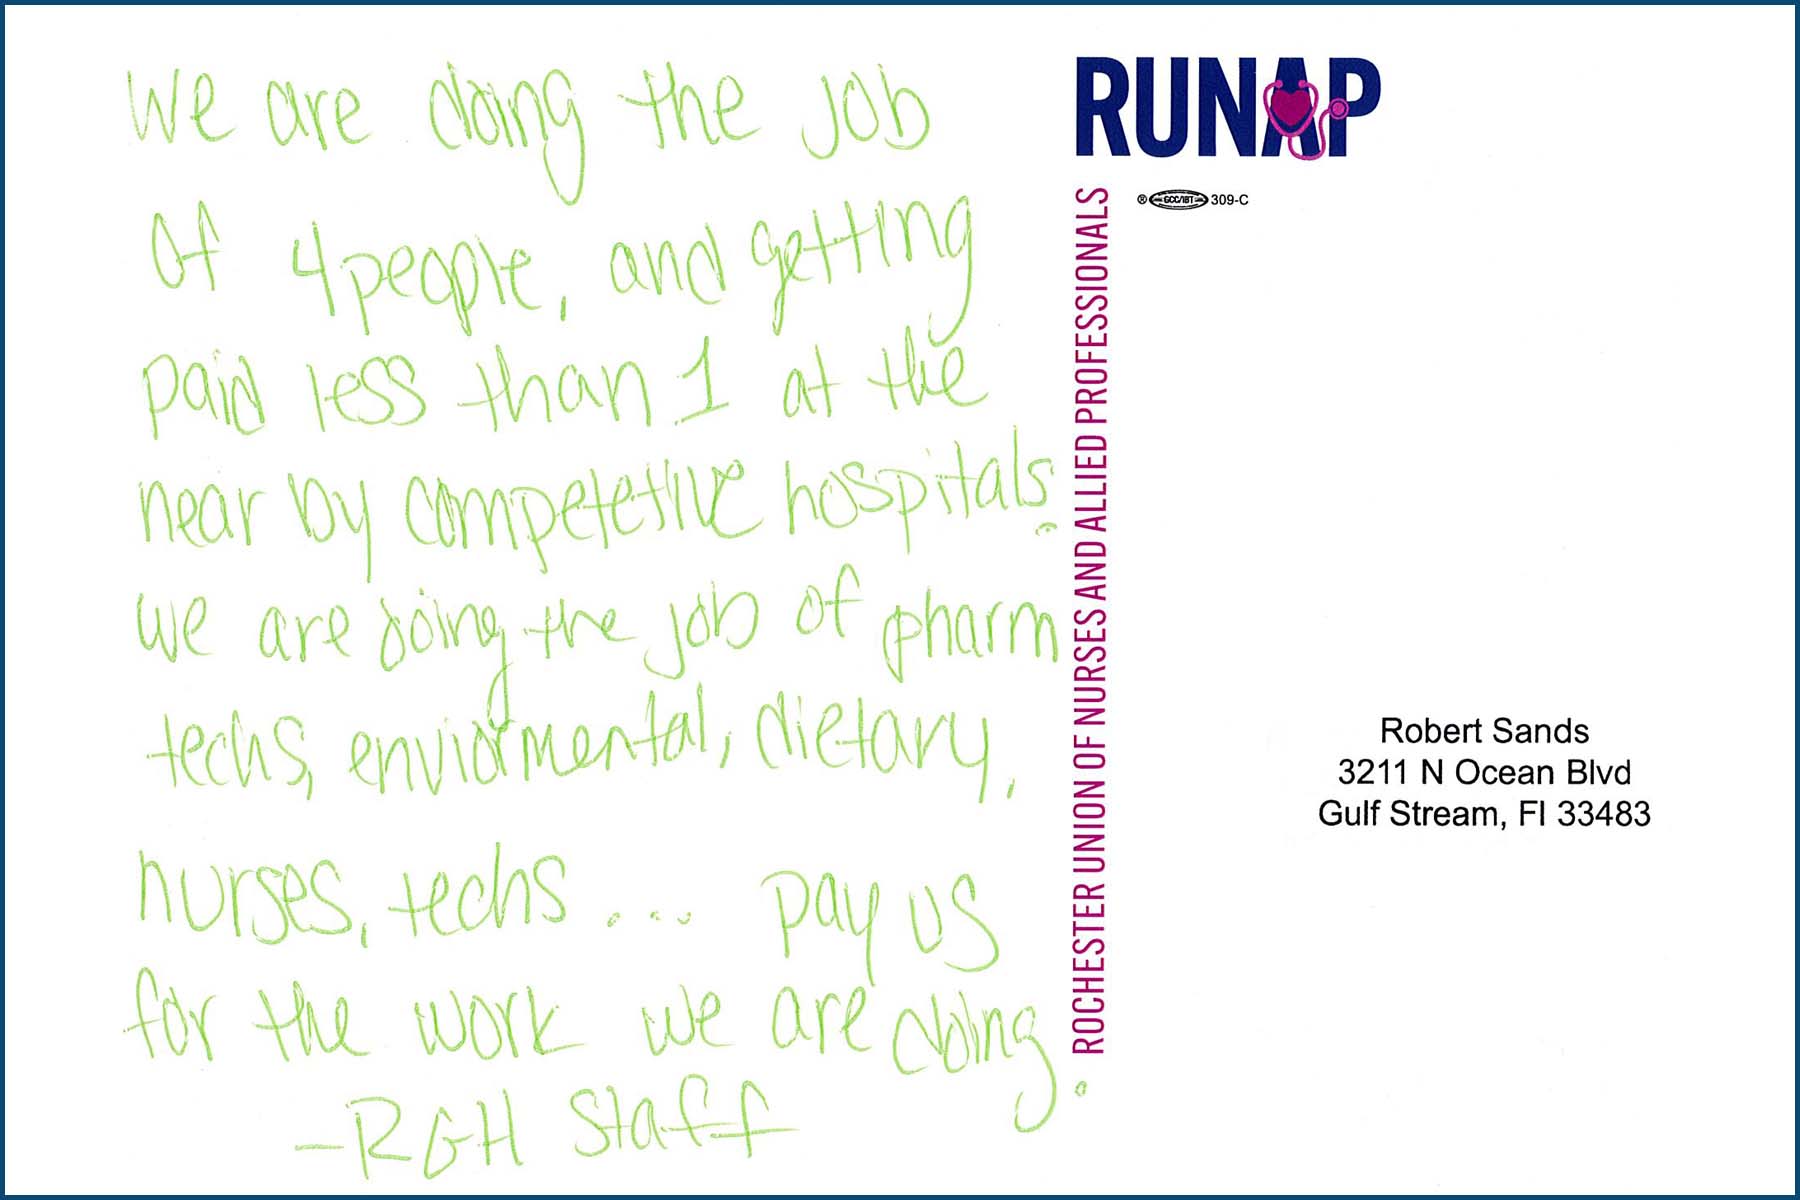 We are doing the job
of 4 people, and getting
paid less than 1 at the
near by competetive hospitals.
we are doing the job of pharm
techs, enviormental, dietary,
nurses, techs .... pay us
for the work we are doing.
-RGH Staff
RUNAP
® GCC/IBT 309-C
ROCHESTER UNION OF NURSES AND ALLIED PROFESSIONALS
Robert Sands
3211 N Ocean Blvd
Gulf Stream, Fl 33483